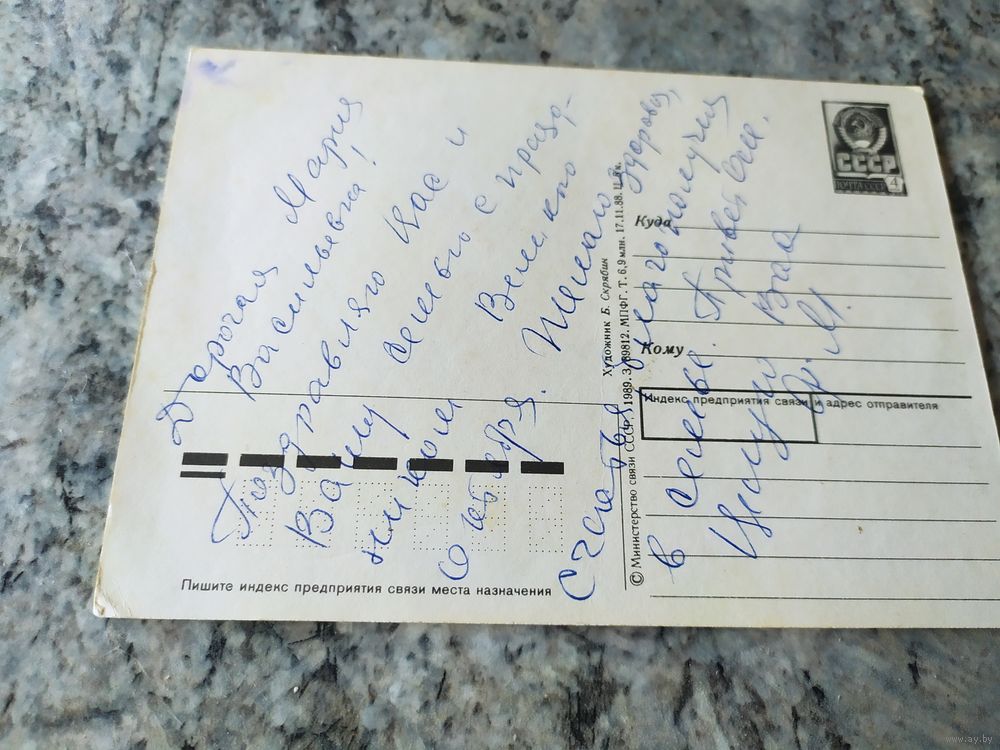 Дорогая Мария
Васильевна!
Поздравляю Вас и
Вашу семью с празд-
ником Великого
октября. Желаю
счастья, здоровья,
благополучия
в семье. Привет Оле.
Целую Вас
СССР
ПОЧТА СССР
4
Куда
Кому
Индекс предприятия связи и адрес отправителя
Пишите индекс предприятия связи места назначения
Художник Б. Скрябин
© Министерство связи СССР, 1989. З. 89812. МПФГ. Т. 6,9 млн. 17.11.88. Ц. 4 к.
www.ay.by